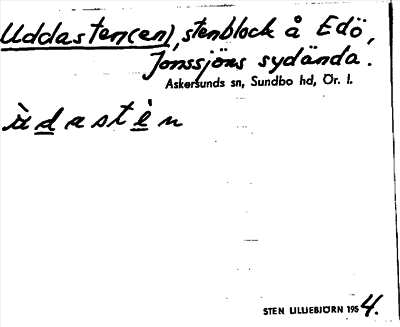 Uddasten(en), stenblock å Edö,
Jonssjöns sydända.
Askersunds sn, Sundbo hd, Ör. l.
ùdastèn
STEN LILLIEBJÖRN 1954.